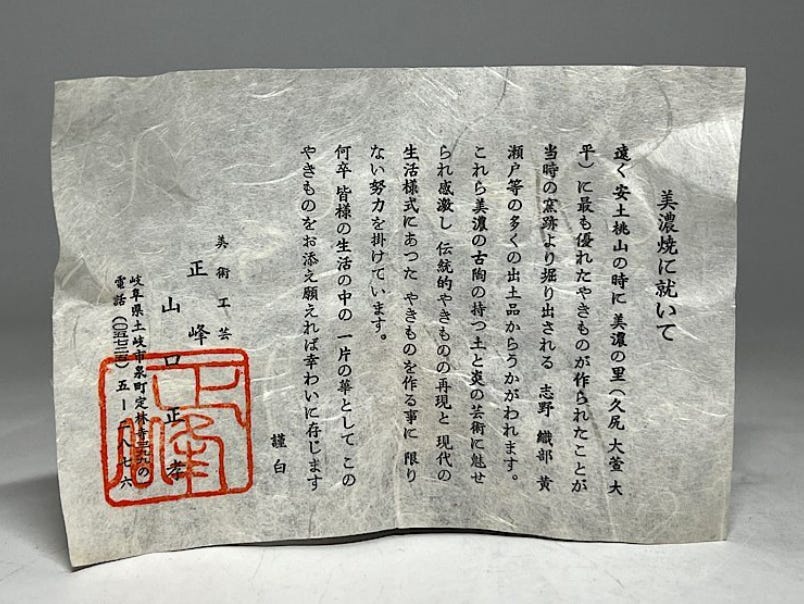 美濃焼に就いて
遠く 安土桃山の時に 美濃の里(久尻 大萱 大
平)に最も優れたやきものが作られたことが
当時の窯跡より堀り出される 志野 織部 黄
瀬戸等の多くの出土品からうかがわれます。
これら美濃の古陶の持つ土と炎の芸術に魅せ
られ感激し 伝統的やきものの再現と 現代の
生活様式にあつた やきものを作る事に 限り
ない努力を掛けています。
何卒 皆様の生活の中の 一片の華として この
やきものをお添え願えれば幸わいに存じます
謹白
美術工芸
正峰
山口正孝
岐阜県土岐市泉町定林寺
電話
正峰